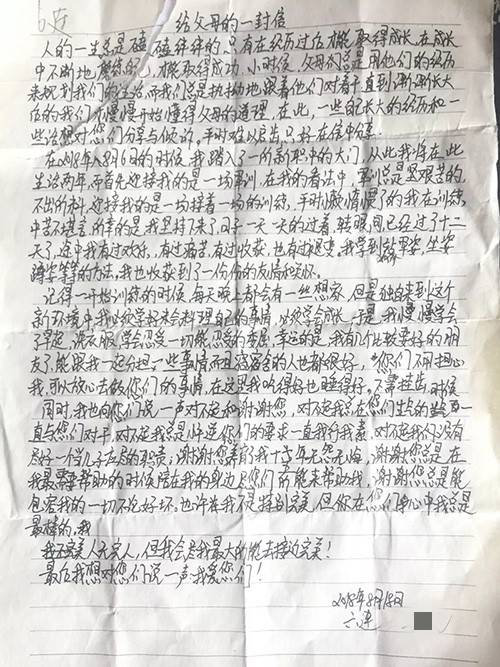 给父母的一封信
人的一生总是磕磕绊绊的,只有在经历过后才能取得成长,在成长
中不断地磨练自己,才能取得成功。小时候,父母亲总是用他们的经历
来规划我们的生活,而我们总是执拗地跟着他们对着干直到渐渐长大
后的我们才慢慢开始懂得父母的道理,在此,一些自己长大的经历和一
些话想对您们分享与倾诉。平时难以启出,只好在信中分享
在2018年八月6日的时候,我踏入了一所新职中的大门,从此我将在此
生活两年,而首先迎接我的是一场军训,在我的看法中,军训总是艰苦的,
不出所料,迎接我的是一场接着一场的训练,平时散漫惯了的我在训练
中苦不堪言,所幸的是我坚持下来了,日子一天一天的过着,转眼间已经过了十二
天了,途中我有过欢欣,有过痛苦,有过收获,也有过改变,我学到站军姿,坐姿
蹲姿等等的方法,我也收获到了一份份的友情和关怀。
记得一开始训练的时候,每天晚上都会有一些想家,但是独自来到这个
新环境中我必须学好来料理自己的事情,必须学会成长,于是,我慢慢学会
了早起,洗衣服,学会忍受一切能忍受的委屈,幸运的是,我有几个比较要好的朋
友,能跟我一起分担一些事情而且宿舍的人也都很好,您们不用担心
我,可以放心去做您们的事情,在这里我吃得好也睡得好,不需挂齿,
同时,我也向您们说一声对不起和谢谢您,对不起我在您们生气的
一直与您们对干,对不起我总是忤逆您们的要求一直我行我素,对不起我们没有
尽好一个当儿子应尽的职责,谢谢您养育我十五年无怨无悔,谢谢您总是在
我最需要帮助的时候陪在我的身边尽您们所能来帮助我,谢谢您总是能
包容我的一切不论好坏。也许差我不是特别完美,但你在您们心中我总是
最棒的,我
我不完美人无完人,但我会尽我最大的能去接近完美!
最后我想对您们说一声:我爱您们!
2018年8月18日
六连